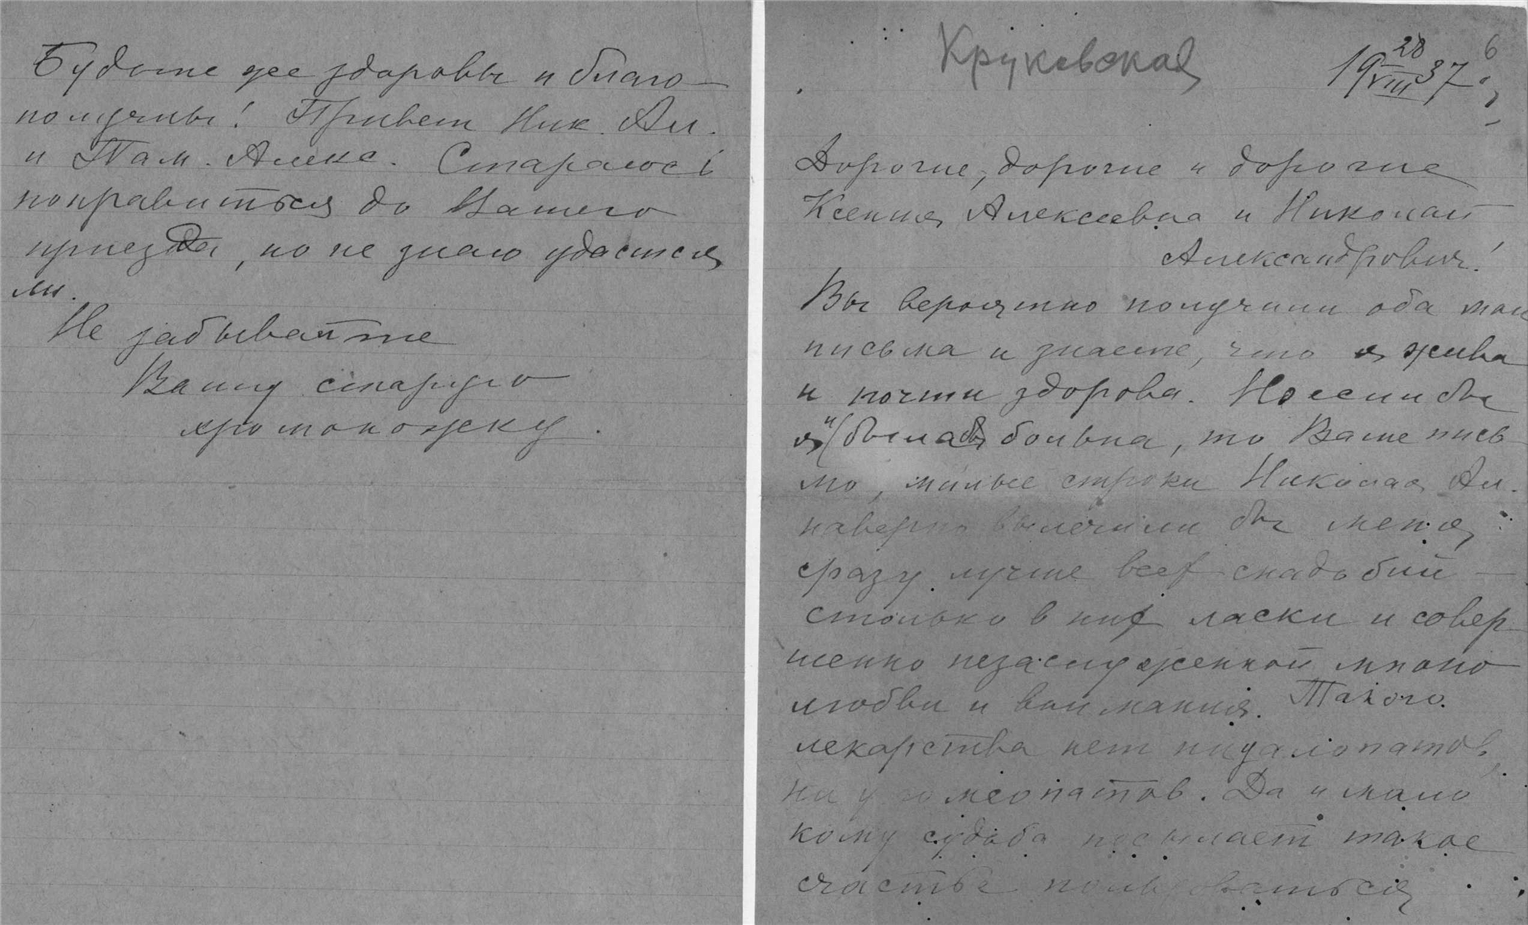 Будьте же здоровы и благо-
получны! Привет Ник. Ал.
и Там. Алекс. Стараюсь
поправиться до Вашего
приезда, но не знаю удастся
ли.
Не забывайте
Вашу старую
хромоножку.
Круковская
19 28/VIII 37
6
Дорогие, дорогие и дорогие
Ксения Алексеевна и Николай
Александрович!
Вы вероятно получили оба мои
письма и знаете, что я жива
и почти здорова. Но если бы
я и была больна, то Ваше пись-
мо, милые строки Николая Ал.
наверно вылечили бы меня
сразу лучше всех снадобий —
столько в них ласки и совер-
шенно незаслуженной мною
любви и внимания. Такого
лекарства нет ни у аллопатов,
ни у гомеопатов. Да и мало
кому судьба посылает такое
счастье пользоваться